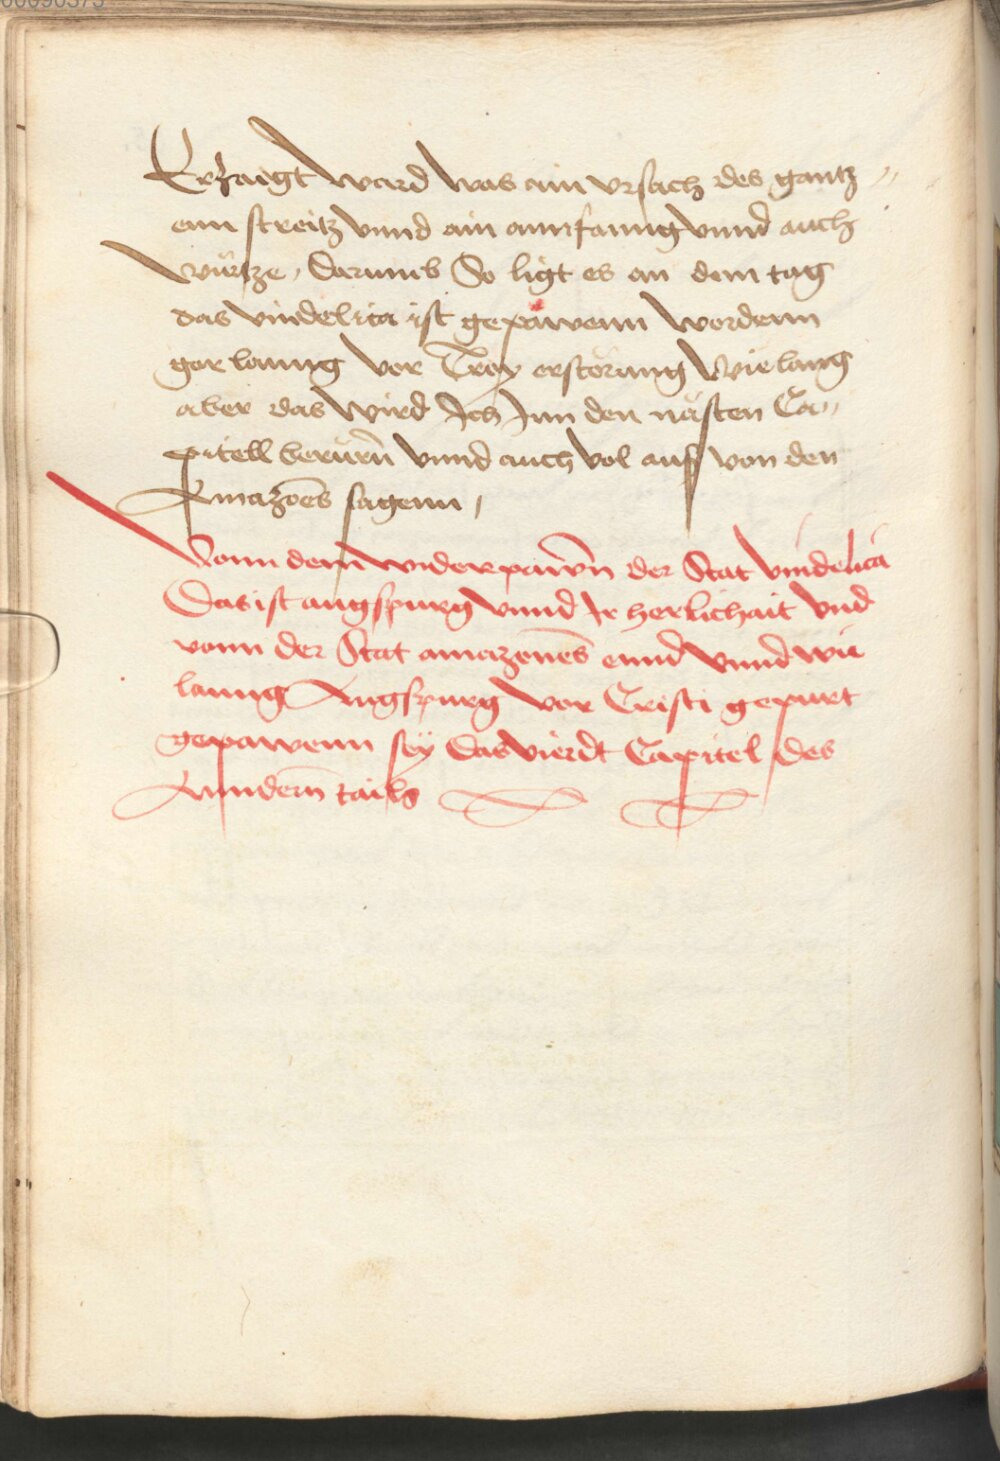 Erzaigt ward was ain vrsach des gantz„
enn streitz vnnd ain annfanng vnnd auch
würtze, Darumb So ligt es an dem tag
das vindelica ist gepawenn wordenn
gar lanng vor Troy erstörung Wie lang
aber das wird Ich Inn den nästen Ca„
pitell berürn̄ vnnd auch vol auf von den
Amazōes sagenn,
Vonn dem widerpawn̄ der Stat vindelica
Das ist augspurg vnnd Ir herlichait vnd
vonn der Stat amazonēs ennd vnnd wie
lanng Augspurg vor Cristi gepurt
gepawenn sey Das vierdt Capitel des
Anndern̄ tails